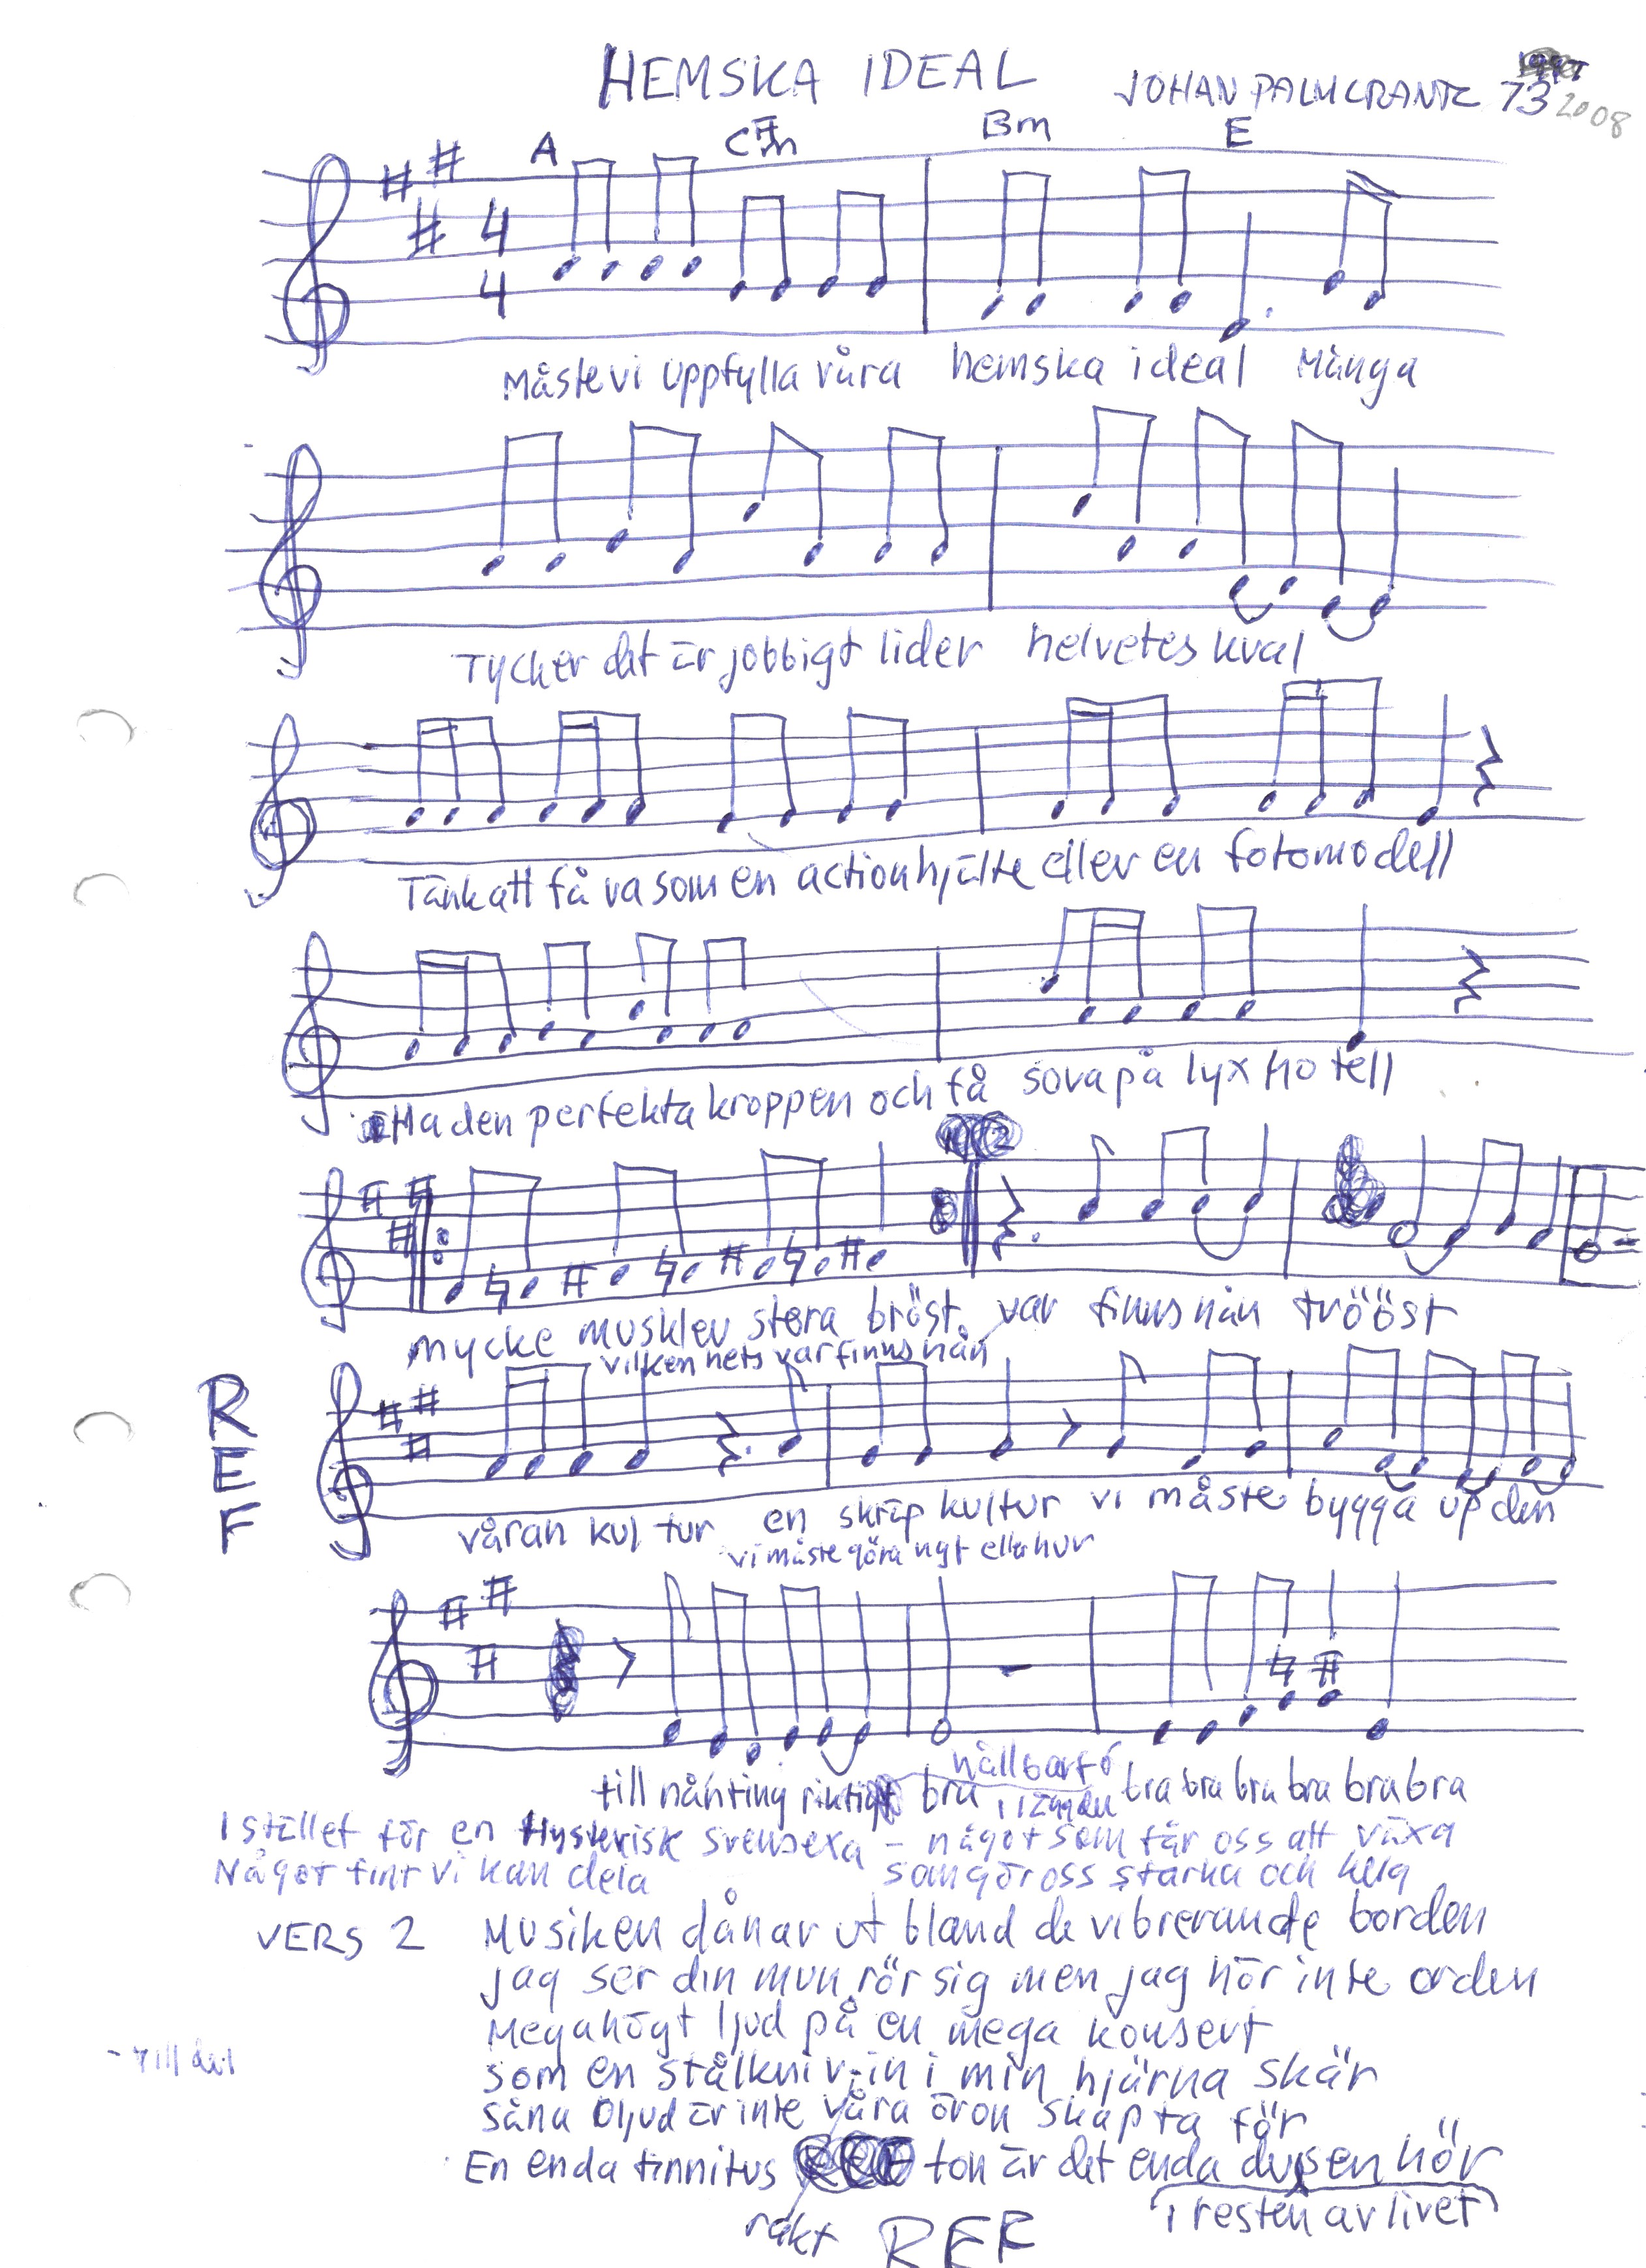 HEMSKA IDEAL JOHAN PALMCRANTZ 73 2008
A C#m Bm E
4
4
Måste vi uppfylla våra hemska ideal Många
Tycker det är jobbigt lider helvetes kval
Tänk att få va som en actionhjälte eller en fotomodell
Ha den perfekta kroppen och få sova på lyx hotell
mycke muskler stora bröst. var finns nån trööst
vilken hets var finns nån
REF
våran kul tur en skräp kultur vi måste bygga up den
vi måste göra ngt eller hur
till nånting riktigt bra hållbart i längden bra bra bra bra bra bra
I stället för en Hysterisk svensexa – något som får oss att växa
Något fint vi kan dela som gör oss starka och hela
VERS 2 Musiken dånar ut bland de vibrerande borden
jag ser din mun rör sig men jag hör inte orden
Megahögt ljud på en mega konsert
som en stålkniv in i min hjärna skär
såna oljud är inte våra öron skapta för
En enda tinnitus ton är det enda du sen hör
i resten av livet
rakt REF